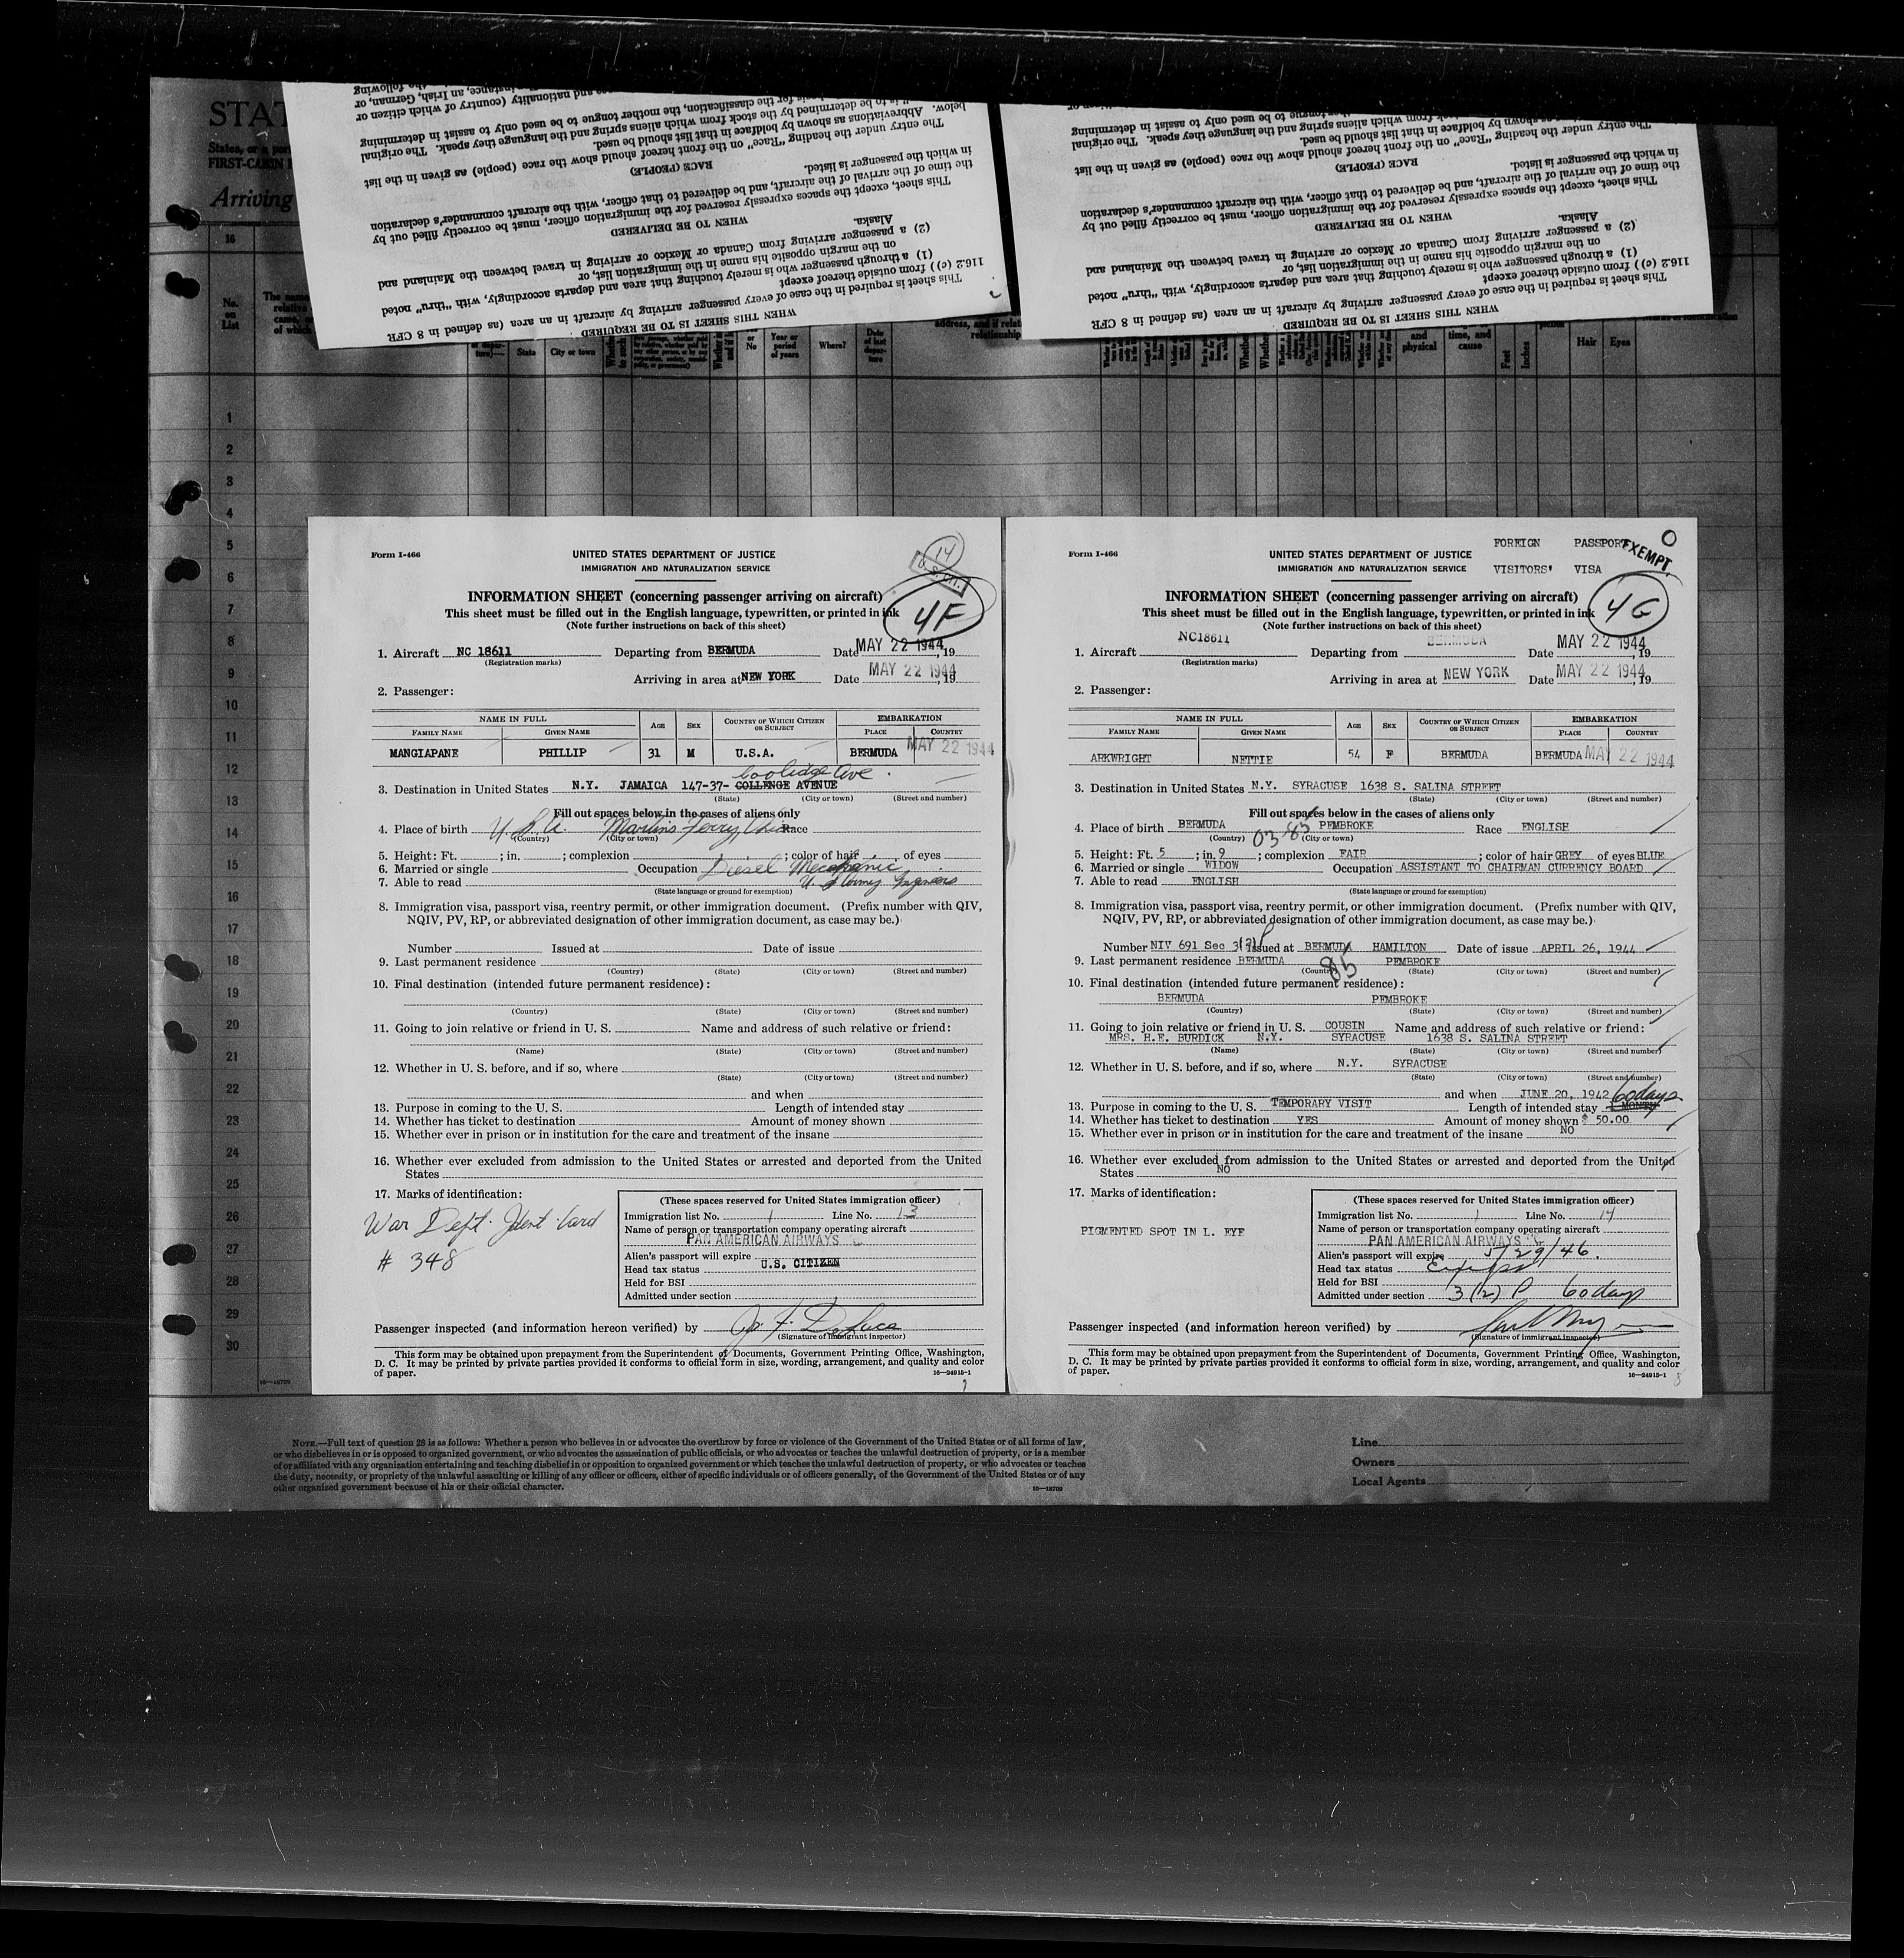 STAT
States, or a
FIRST-CABIN
Arriving
This sheet is required in the case of every passenger arriving by aircraft in an area (as defined in 8 CFR
116.2 (c)) from outside thereof except
(1) a through passenger who is merely touching that area and departs accordingly, with "thru" noted
on the margin opposite his name in the immigration list, or
(2) a passenger arriving from Canada or Mexico or arriving in travel between the Mainland and
Alaska.
WHEN THIS SHEET IS TO BE REQUIRED
WHEN TO BE DELIVERED
This sheet, except the spaces expressly reserved for the immigration officer, must be correctly filled out by
the time of the arrival of the aircraft, and be delivered to that officer, with the aircraft commander's declaration
in which the passenger is listed.
RACE (PEOPLE)
The entry under the heading "Race" on the front hereof should show the race (people) as given in the list
below. Abbreviations as shown by boldface in that list should be used.
Form I-466
UNITED STATES DEPARTMENT OF JUSTICE
IMMIGRATION AND NATURALIZATION SERVICE
14
4F
INFORMATION SHEET (concerning passenger arriving on aircraft)
This sheet must be filled out in the English language, typewritten, or printed in ink
(Note further instructions on back of this sheet)
1. Aircraft NC 18611 Departing from BERMUDA Date MAY 22 1944, 19
(Registration marks)
Arriving in area at NEW YORK Date MAY 22 1944, 19
2. Passenger:
NAME IN FULL AGE SEX COUNTRY OF WHICH CITIZEN OR SUBJECT EMBARKATION
FAMILY NAME GIVEN NAME PLACE COUNTRY
MANGIAPANE PHILLIP 31 M U.S.A. BERMUDA MAY 22 1944
Coolidge Ave.
3. Destination in United States N.Y. JAMAICA 147-37- COLLENGE AVENUE
(State) (City or town) (Street and number)
Fill out spaces below in the cases of aliens only
4. Place of birth U.S.A. Martins Ferry, Ohio Race
(Country) (City or town)
5. Height: Ft. ; in. ; complexion ; color of hair of eyes
6. Married or single Occupation Diesel Mechanic
7. Able to read U.S. Army Engineers
(State language or ground for exemption)
8. Immigration visa, passport visa, reentry permit, or other immigration document. (Prefix number with QIV,
NQIV, PV, RP, or abbreviated designation of other immigration document, as case may be.)
Number Issued at Date of issue
9. Last permanent residence
(Country) (State) (City or town) (Street and number)
10. Final destination (intended future permanent residence):
(Country) (State) (City or town) (Street and number)
11. Going to join relative or friend in U. S. Name and address of such relative or friend:
(Name) (State) (City or town) (Street and number)
12. Whether in U. S. before, and if so, where
(State) (City or town) (Street and number)
and when
13. Purpose in coming to the U. S. Length of intended stay
14. Whether has ticket to destination Amount of money shown
15. Whether ever in prison or in institution for the care and treatment of the insane
16. Whether ever excluded from admission to the United States or arrested and deported from the United
States
17. Marks of identification:
War Dept. Ident. Card
# 348
(These spaces reserved for United States immigration officer)
Immigration list No. 1 Line No. 13
Name of person or transportation company operating aircraft
PAN AMERICAN AIRWAYS
Alien's passport will expire
Head tax status U.S. CITIZEN
Held for BSI
Admitted under section
Passenger inspected (and information hereon verified) by
(Signature of immigrant inspector)
This form may be obtained upon prepayment from the Superintendent of Documents, Government Printing Office, Washington,
D. C. It may be printed by private parties provided it conforms to official form in size, wording, arrangement, and quality and color
of paper.
16—24915-1
Form I-466
UNITED STATES DEPARTMENT OF JUSTICE
IMMIGRATION AND NATURALIZATION SERVICE
FOREIGN PASSPORT
VISITORS' VISA
EXEMPT
4G
INFORMATION SHEET (concerning passenger arriving on aircraft)
This sheet must be filled out in the English language, typewritten, or printed in ink
(Note further instructions on back of this sheet)
1. Aircraft NC18611 Departing from BERMUDA Date MAY 22 1944, 19
(Registration marks)
Arriving in area at NEW YORK Date MAY 22 1944, 19
2. Passenger:
NAME IN FULL AGE SEX COUNTRY OF WHICH CITIZEN OR SUBJECT EMBARKATION
FAMILY NAME GIVEN NAME PLACE COUNTRY
ARKWRIGHT NETTIE 54 F BERMUDA BERMUDA MAY 22 1944
3. Destination in United States N.Y. SYRACUSE 1638 S. SALINA STREET
(State) (City or town) (Street and number)
Fill out spaces below in the cases of aliens only
4. Place of birth BERMUDA PEMBROKE Race ENGLISH
(Country) 03-85 (City or town)
5. Height: Ft. 5 ; in. 9 ; complexion FAIR ; color of hair GREY of eyes BLUE
6. Married or single WIDOW Occupation ASSISTANT TO CHAIRMAN CURRENCY BOARD
7. Able to read ENGLISH
(State language or ground for exemption)
8. Immigration visa, passport visa, reentry permit, or other immigration document. (Prefix number with QIV,
NQIV, PV, RP, or abbreviated designation of other immigration document, as case may be.)
Number NIV 691 Sec 3(2) Issued at BERMUDA HAMILTON Date of issue APRIL 26, 1944
9. Last permanent residence BERMUDA 85 PEMBROKE
(Country) (State) (City or town) (Street and number)
10. Final destination (intended future permanent residence):
BERMUDA PEMBROKE
(Country) (State) (City or town) (Street and number)
11. Going to join relative or friend in U. S. COUSIN Name and address of such relative or friend:
MRS. H.E. BURDICK N.Y. SYRACUSE 1638 S. SALINA STREET
(Name) (State) (City or town) (Street and number)
12. Whether in U. S. before, and if so, where N.Y. SYRACUSE
(State) (City or town) (Street and number)
and when JUNE 20, 1942 60 days
13. Purpose in coming to the U. S. TEMPORARY VISIT Length of intended stay MONTH
14. Whether has ticket to destination YES Amount of money shown $ 50.00
15. Whether ever in prison or in institution for the care and treatment of the insane NO
16. Whether ever excluded from admission to the United States or arrested and deported from the United
States NO
17. Marks of identification:
PIGMENTED SPOT IN L. EYE
(These spaces reserved for United States immigration officer)
Immigration list No. 1 Line No. 14
Name of person or transportation company operating aircraft
PAN AMERICAN AIRWAYS
Alien's passport will expire 5/29/46.
Head tax status Exempt
Held for BSI
Admitted under section 3(2) P 60 days
Passenger inspected (and information hereon verified) by
(Signature of immigrant inspector)
This form may be obtained upon prepayment from the Superintendent of Documents, Government Printing Office, Washington,
D. C. It may be printed by private parties provided it conforms to official form in size, wording, arrangement, and quality and color
of paper.
16—24915-1
NOTE.—Full text of question 28 is as follows: Whether a person who believes in or advocates the overthrow by force or violence of the Government of the United States or of all forms of law,
or who disbelieves in or is opposed to organized government, or who advocates the assassination of public officials, or who advocates or teaches the unlawful destruction of property, or is a member
of or affiliated with any organization entertaining and teaching disbelief in or opposition to organized government or which teaches the unlawful destruction of property, or who advocates or teaches
the duty, necessity, or propriety of the unlawful assaulting or killing of any officer or officers, either of specific individuals or of officers generally, of the Government of the United States or of any
other organized government because of his or their official character.
16—18709
Line
Owners
Local Agents